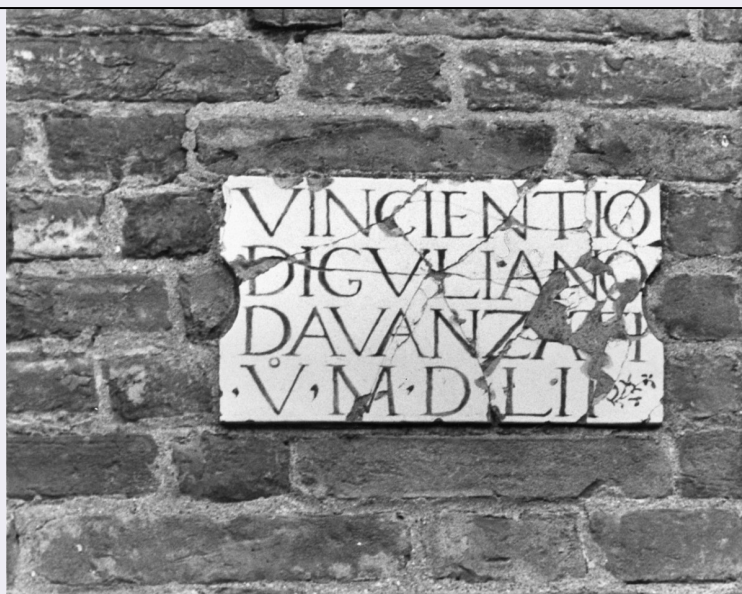 VINCIENTIO
DIGVLIANO
DAVANZATI
· V · M · D · LII